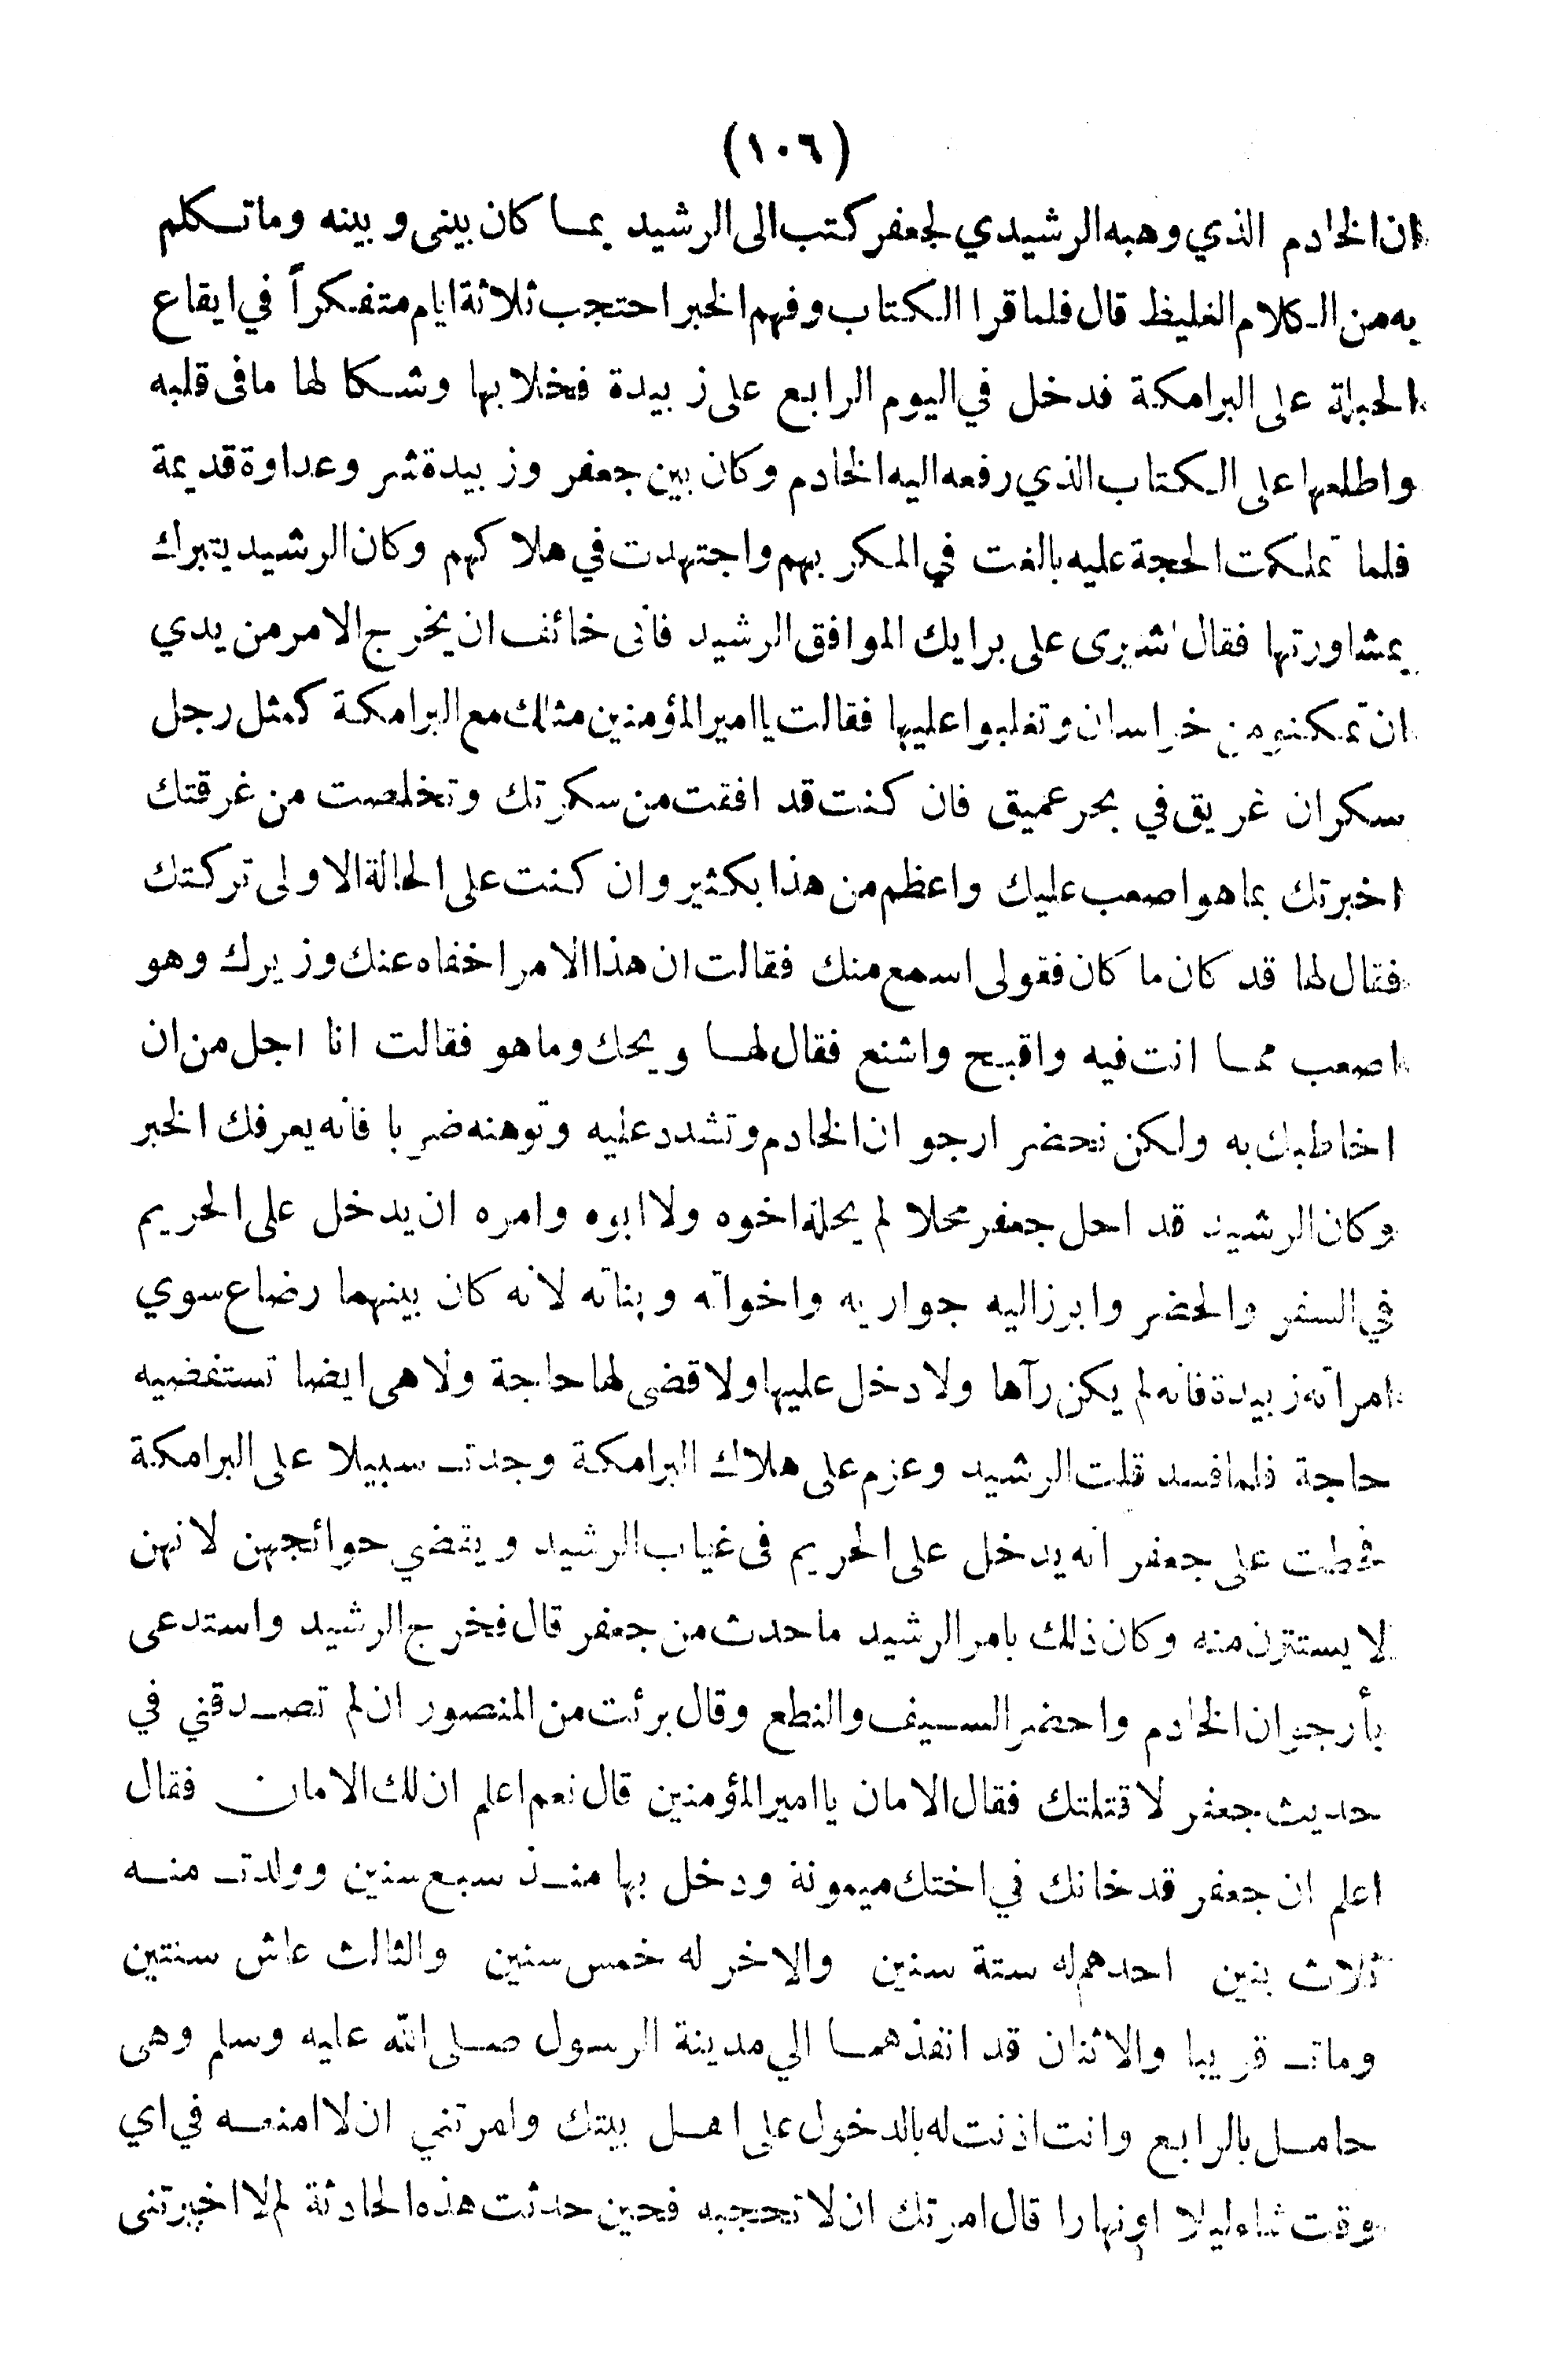 (١٠٦)
ان الخادم الذي وهبه الرشيدي لجعفر كتب الى الرشيد بما كان بينى وبينه وما تكلم
به من الكلام الغليظ قال فلما قرا الكتاب وفهم الخبر احتجب ثلاثة ايام متفكراً في ايقاع
الحيلة على البرامكة فدخل في اليوم الرابع على زبيدة فخلا بها وشكا لها ما فى قلبه
واطلعها على الكتاب الذي رفعه اليه الخادم وكان بين جعفر وزبيدة شر وعداوة قديمة
فلما تملكت الحجة عليه بالغت في المكر بهم واجتهدت في هلاكهم وكان الرشيد يتبرك
بمشاورتها فقال اشيرى على برايك الموافق الرشيد فانى خائف ان يخرج الامر من يدي
ان تمكنو من خراسان وتغلبوا عليها فقالت يا امير المؤمنين مثلك مع البرامكة كمثل رجل
سكران غريق في بحر عميق فان كنت قد افقت من سكرتك وتخلصت من غرقتك
اخبرتك بما هو اصعب عليك واعظم من هذا بكثير وان كنت على الحالة الاولى تركتك
فقال لها قد كان ما كان فقولى اسمع منك فقالت ان هذا الامر اخفاه عنك وزيرك وهو
اصعب مما انت فيه واقبح واشنع فقال لها ويحك وما هو فقالت انا اجل من ان
اخاطبك به ولكن تحضر ارجوان الخادم وتشدد عليه وتوهنه ضربا فانه يعرفك الخبر
وكان الرشيد قد احل جعفر محلا لم يحله اخوه ولا ابوه وامره ان يدخل على الحريم
في السفر والحضر وابرز اليه جواريه واخواته وبناته لانه كان بينهما رضاع سوي
امراته زبيدة فانه لم يكن رآها ولا دخل عليها ولا قضى لها حاجة ولا هى ايضا تستقضيه
حاجة فلما فسد قلت الرشيد وعزم على هلاك البرامكة وجدت سبيلا على البرامكة
فحطت على جعفر انه يدخل على الحريم فى غياب الرشيد ويقضي حوائجهن لانهن
لا يستترن منه وكان ذلك بامر الرشيد ما حدث من جعفر قال فخرج الرشيد واستدعى
بأرجوان الخادم واحضر السيف والنطع وقال برئت من المنصور ان لم تصدقني في
حديث جعفر لا قتلتك فقال الامان يا امير المؤمنين قال نعم اعلم ان لك الامان فقال
اعلم ان جعفر قد خانك في اختك ميمونة ودخل بها منذ سبع سنين وولدت منه
ثلاث بنين احدهم له ستة سنين والاخر له خمس سنين والثالث عاش سنتين
ومات قريبا والاثنان قد انفذهما الي مدينة الرسول صلى الله عليه وسلم وهى
حامل بالرابع وانت اذنت له بالدخول على اهل بيتك وامرتني ان لا امنعه في اي
وقت شاء ليلا او نهارا قال امرتك ان لا تحجبه فحين حدثت هذه الحادثة لم لا اخبرتنى